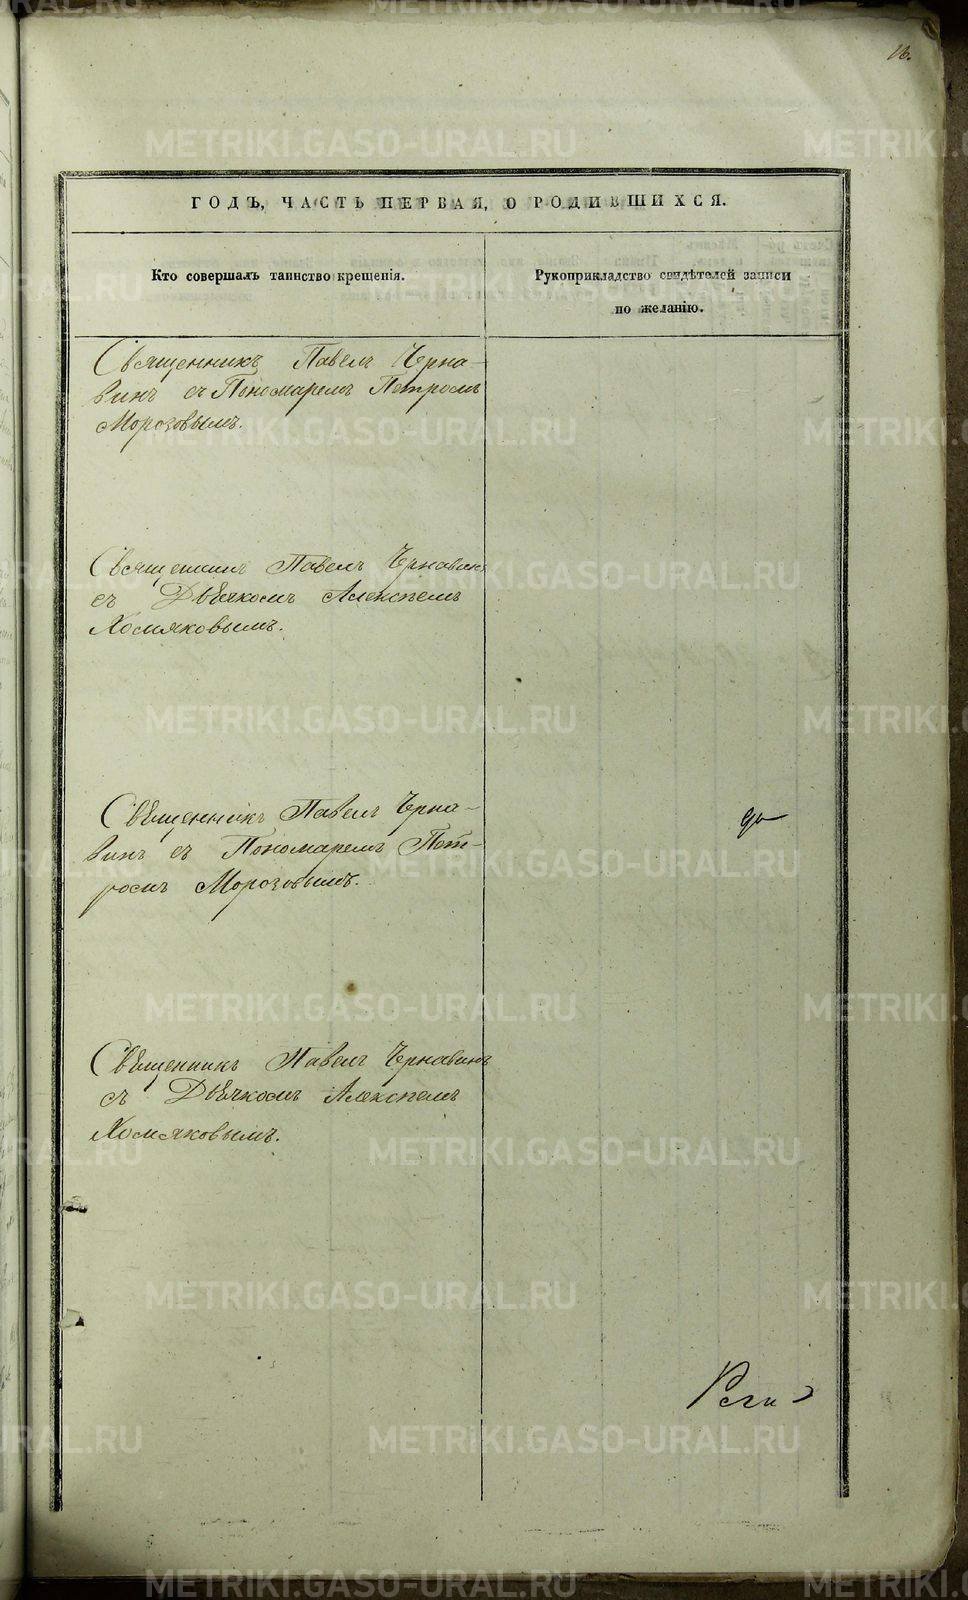 16.
ГОДЪ, ЧАСТЬ ПЕРВАЯ, О РОДИВШИХСЯ.
Кто совершалъ таинство крещенія.
Рукоприкладство свидѣтелей записи
по желанію.
Священникъ Павелъ Черна-
винъ съ Пономаремъ Петромъ
Морозовымъ.
Священникъ Павелъ Чернавинъ
съ Дьячкомъ Алексѣемъ
Хомяковымъ.
Священникъ Павелъ Черна-
винъ съ Пономаремъ Пет-
ромъ Морозовымъ.
Священникъ Павелъ Чернавинъ
съ Дьячкомъ Алексѣемъ
Хомяковымъ.
METRIKI.GASO-URAL.RU